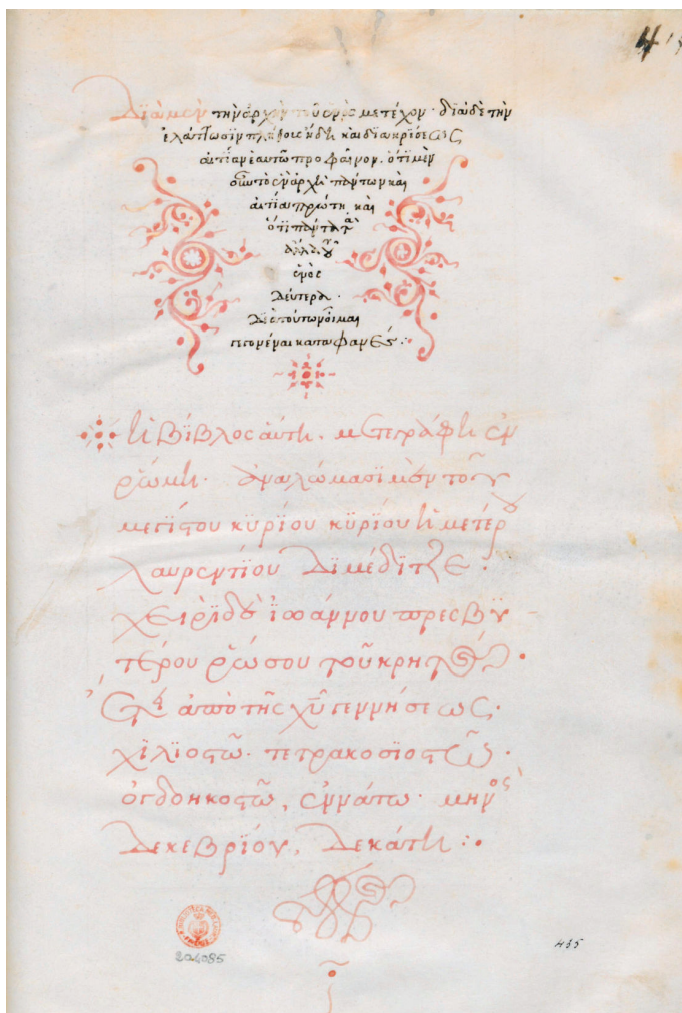 Διὰ μὲν τὴν ἀρχὴν τοῦ ἑνὸς μετέχον· διὰ δὲ τὴν
ἐλάττωσϊν πλήθους ἤδη καὶ διακρίσεως
αἰτίαν ἑαυτῶ προφαῖνον. ὅτι μὲν
οὖν τὸ ἓν ἀρχὴ πάντων καὶ
αἰτία πρώτη καὶ
ὅτι πάντα τὰ
ἄλλα τοῦ
ἑνὸς
δεύτερα·
διὰ τούτων οἶμαι
γεγονέναι καταφανές:·
ἡ βΐβλος αὕτη. μετεγράφη ἐν
ῥώμη· ἀναλώμασϊ μὲν τοῦ
μεγΐστου κϋρΐου κϋρΐου ἡμετέρου
λαυρεντΐου δϊ μέδϊτζε·
χειρὶ δὲ ϊωάννου πρεσβϋ
τέρου ῥώσου τοῦ κρητὸς·
Ἔτει ἀπὸ τῆς χῦ γεννήσεως·
χϊλϊοστῶ· τετρακοσϊοστῶ·
ὀγδοηκοστῶ, ἐννάτω· μηνὸς
Δεκεβρΐου, Δεκάτη:·
204085
465